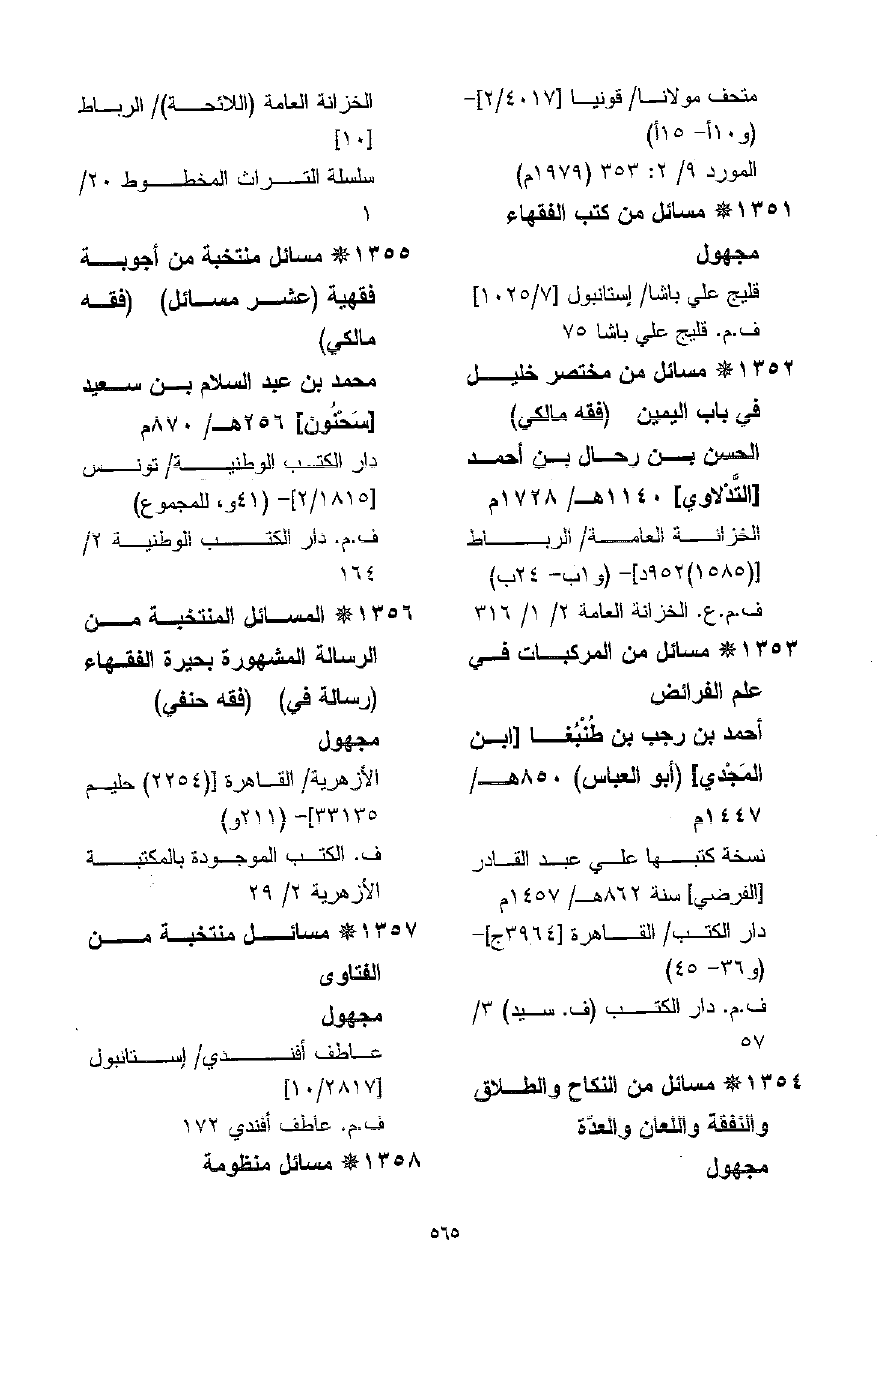 متحف مولانا/ قونيا [٢/٤٠١٧]-
(و١٠أ- ١٥أ)
المورد ٩/ ٢: ٣٥٣ (١٩٧٩م)
١٣٥١* مسائل من كتب الفقهاء
مجهول
قليج علي باشا/ إستانبول [١٠٢٥/٧]
ف.م. قليج علي باشا ٧٥
١٣٥٢* مسائل من مختصر خليل
في باب اليمين (فقه مالكي)
الحسن بن رحال بن أحمد
[التَّدْلاوي] ١١٤٠هـ/ ١٧٢٨م
الخزانة العامة/ الرباط
[(١٥٨٥)٩٥٢د]- (و١ب- ٢٤ب)
ف.م.ع. الخزانة العامة ٢/ ١/ ٣١٦
١٣٥٣* مسائل من المركبات في
علم الفرائض
أحمد بن رجب بن طُنْبُغا [ابن
المَجْدي] (أبو العباس) ٨٥٠هـ/
١٤٤٧م
نسخة كتبها علي عبد القادر
[الفرضي] سنة ٨٦٢هـ/ ١٤٥٧م
دار الكتب/ القاهرة [٣٩٦٤ج]-
(و٣٦- ٤٥)
ف.م. دار الكتب (ف. سيد) ٣/
٥٧
١٣٥٤* مسائل من النكاح والطلاق
والنفقة واللعان والعدّة
مجهول
الخزانة العامة (اللائحة)/ الرباط
[١٠]
سلسلة التراث المخطوط ٢٠/
١
١٣٥٥* مسائل منتخبة من أجوبة
فقهية (عشر مسائل) (فقه
مالكي)
محمد بن عبد السلام بن سعيد
[سَحْنُون] ٢٥٦هـ/ ٨٧٠م
دار الكتب الوطنية/ تونس
[٢/١٨١٥]- (٤١و، للمجموع)
ف.م. دار الكتب الوطنية ٢/
١٦٤
١٣٥٦* المسائل المنتخبة من
الرسالة المشهورة بحيرة الفقهاء
(رسالة في) (فقه حنفي)
مجهول
الأزهرية/ القاهرة [(٢٢٥٤) حليم
٣٣١٣٥]- (٢١١و)
ف. الكتب الموجودة بالمكتبة
الأزهرية ٢/ ٢٩
١٣٥٧* مسائل منتخبة من
الفتاوى
مجهول
عاطف أفندي/ إستانبول
[١٠/٢٨١٧]
ف.م. عاطف أفندي ١٧٢
١٣٥٨* مسائل منظومة
٥٦٥